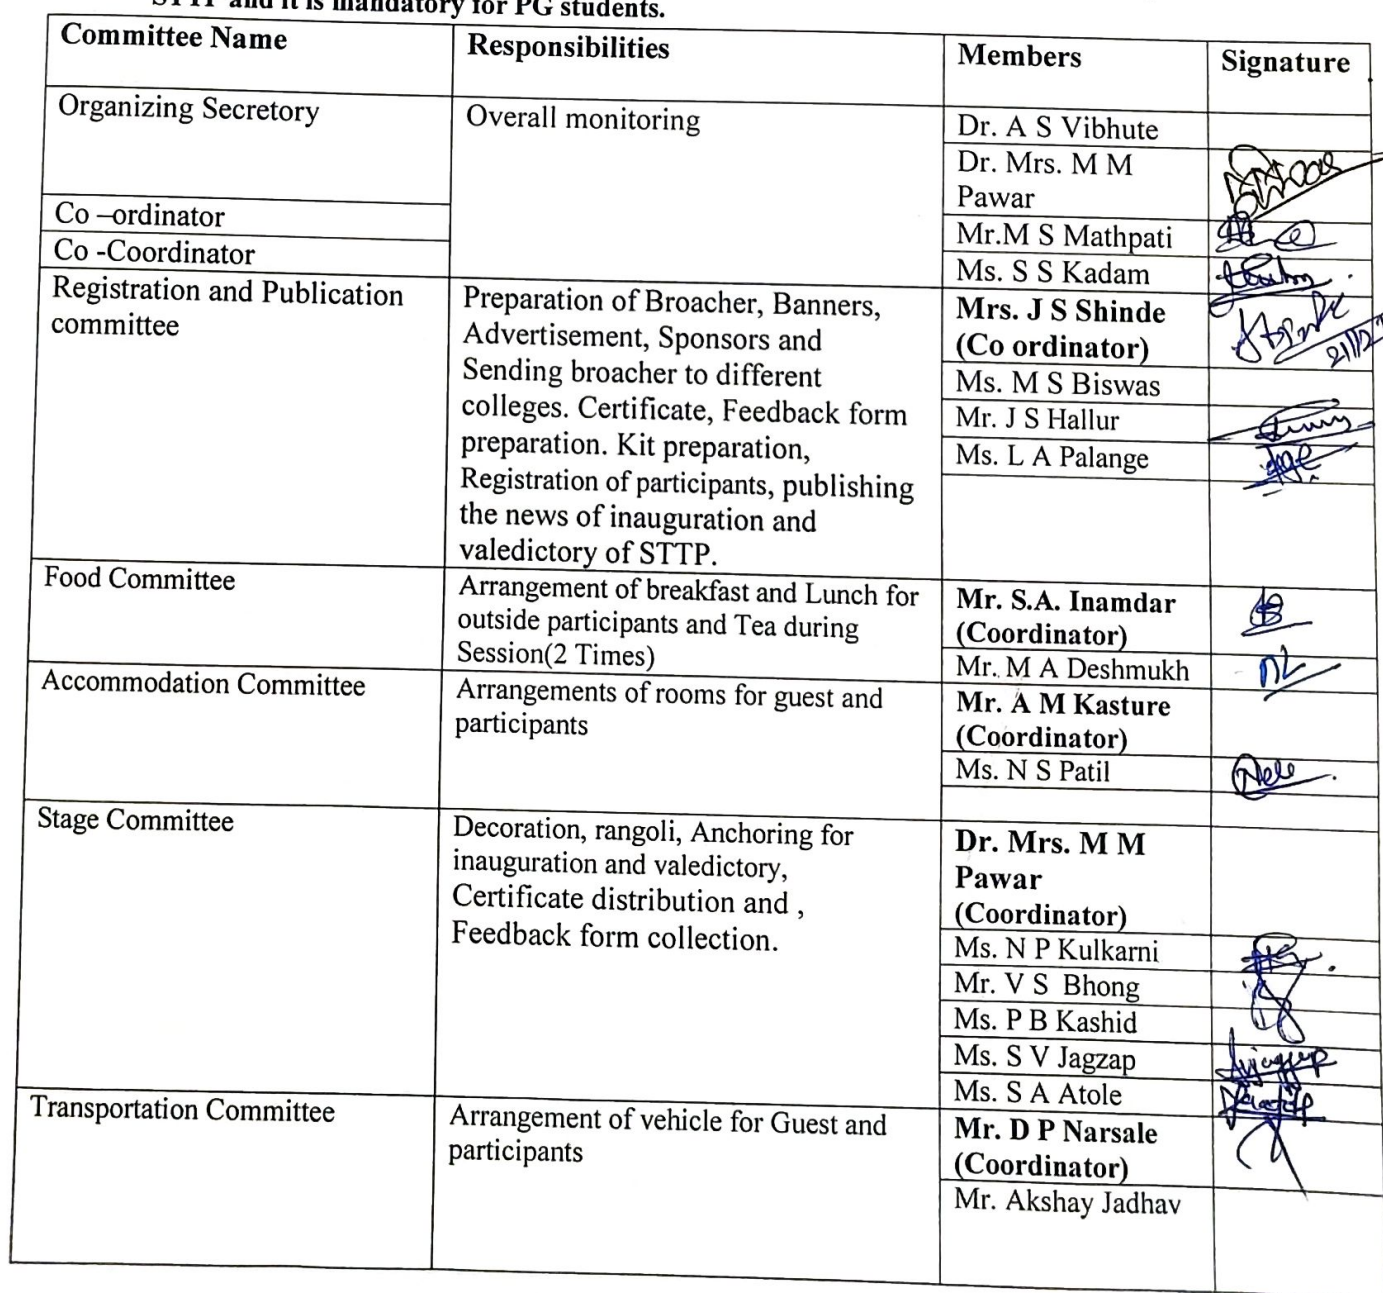 STTP and it is mandatory for PG students.
Committee Name
Responsibilities
Members
Signature
Organizing Secretory
Overall monitoring
Dr. A S Vibhute
Dr. Mrs. M M
Pawar
Co –ordinator
Mr.M S Mathpati
Co -Coordinator
Ms. S S Kadam
Registration and Publication
committee
Preparation of Broacher, Banners,
Advertisement, Sponsors and
Sending broacher to different
colleges. Certificate, Feedback form
preparation. Kit preparation,
Registration of participants, publishing
the news of inauguration and
valedictory of STTP.
Mrs. J S Shinde
(Co ordinator)
Ms. M S Biswas
Mr. J S Hallur
Ms. L A Palange
Food Committee
Arrangement of breakfast and Lunch for
outside participants and Tea during
Session(2 Times)
Mr. S.A. Inamdar
(Coordinator)
Mr. M A Deshmukh
Accommodation Committee
Arrangements of rooms for guest and
participants
Mr. A M Kasture
(Coordinator)
Ms. N S Patil
Stage Committee
Decoration, rangoli, Anchoring for
inauguration and valedictory,
Certificate distribution and ,
Feedback form collection.
Dr. Mrs. M M
Pawar
(Coordinator)
Ms. N P Kulkarni
Mr. V S Bhong
Ms. P B Kashid
Ms. S V Jagzap
Ms. S A Atole
Transportation Committee
Arrangement of vehicle for Guest and
participants
Mr. D P Narsale
(Coordinator)
Mr. Akshay Jadhav